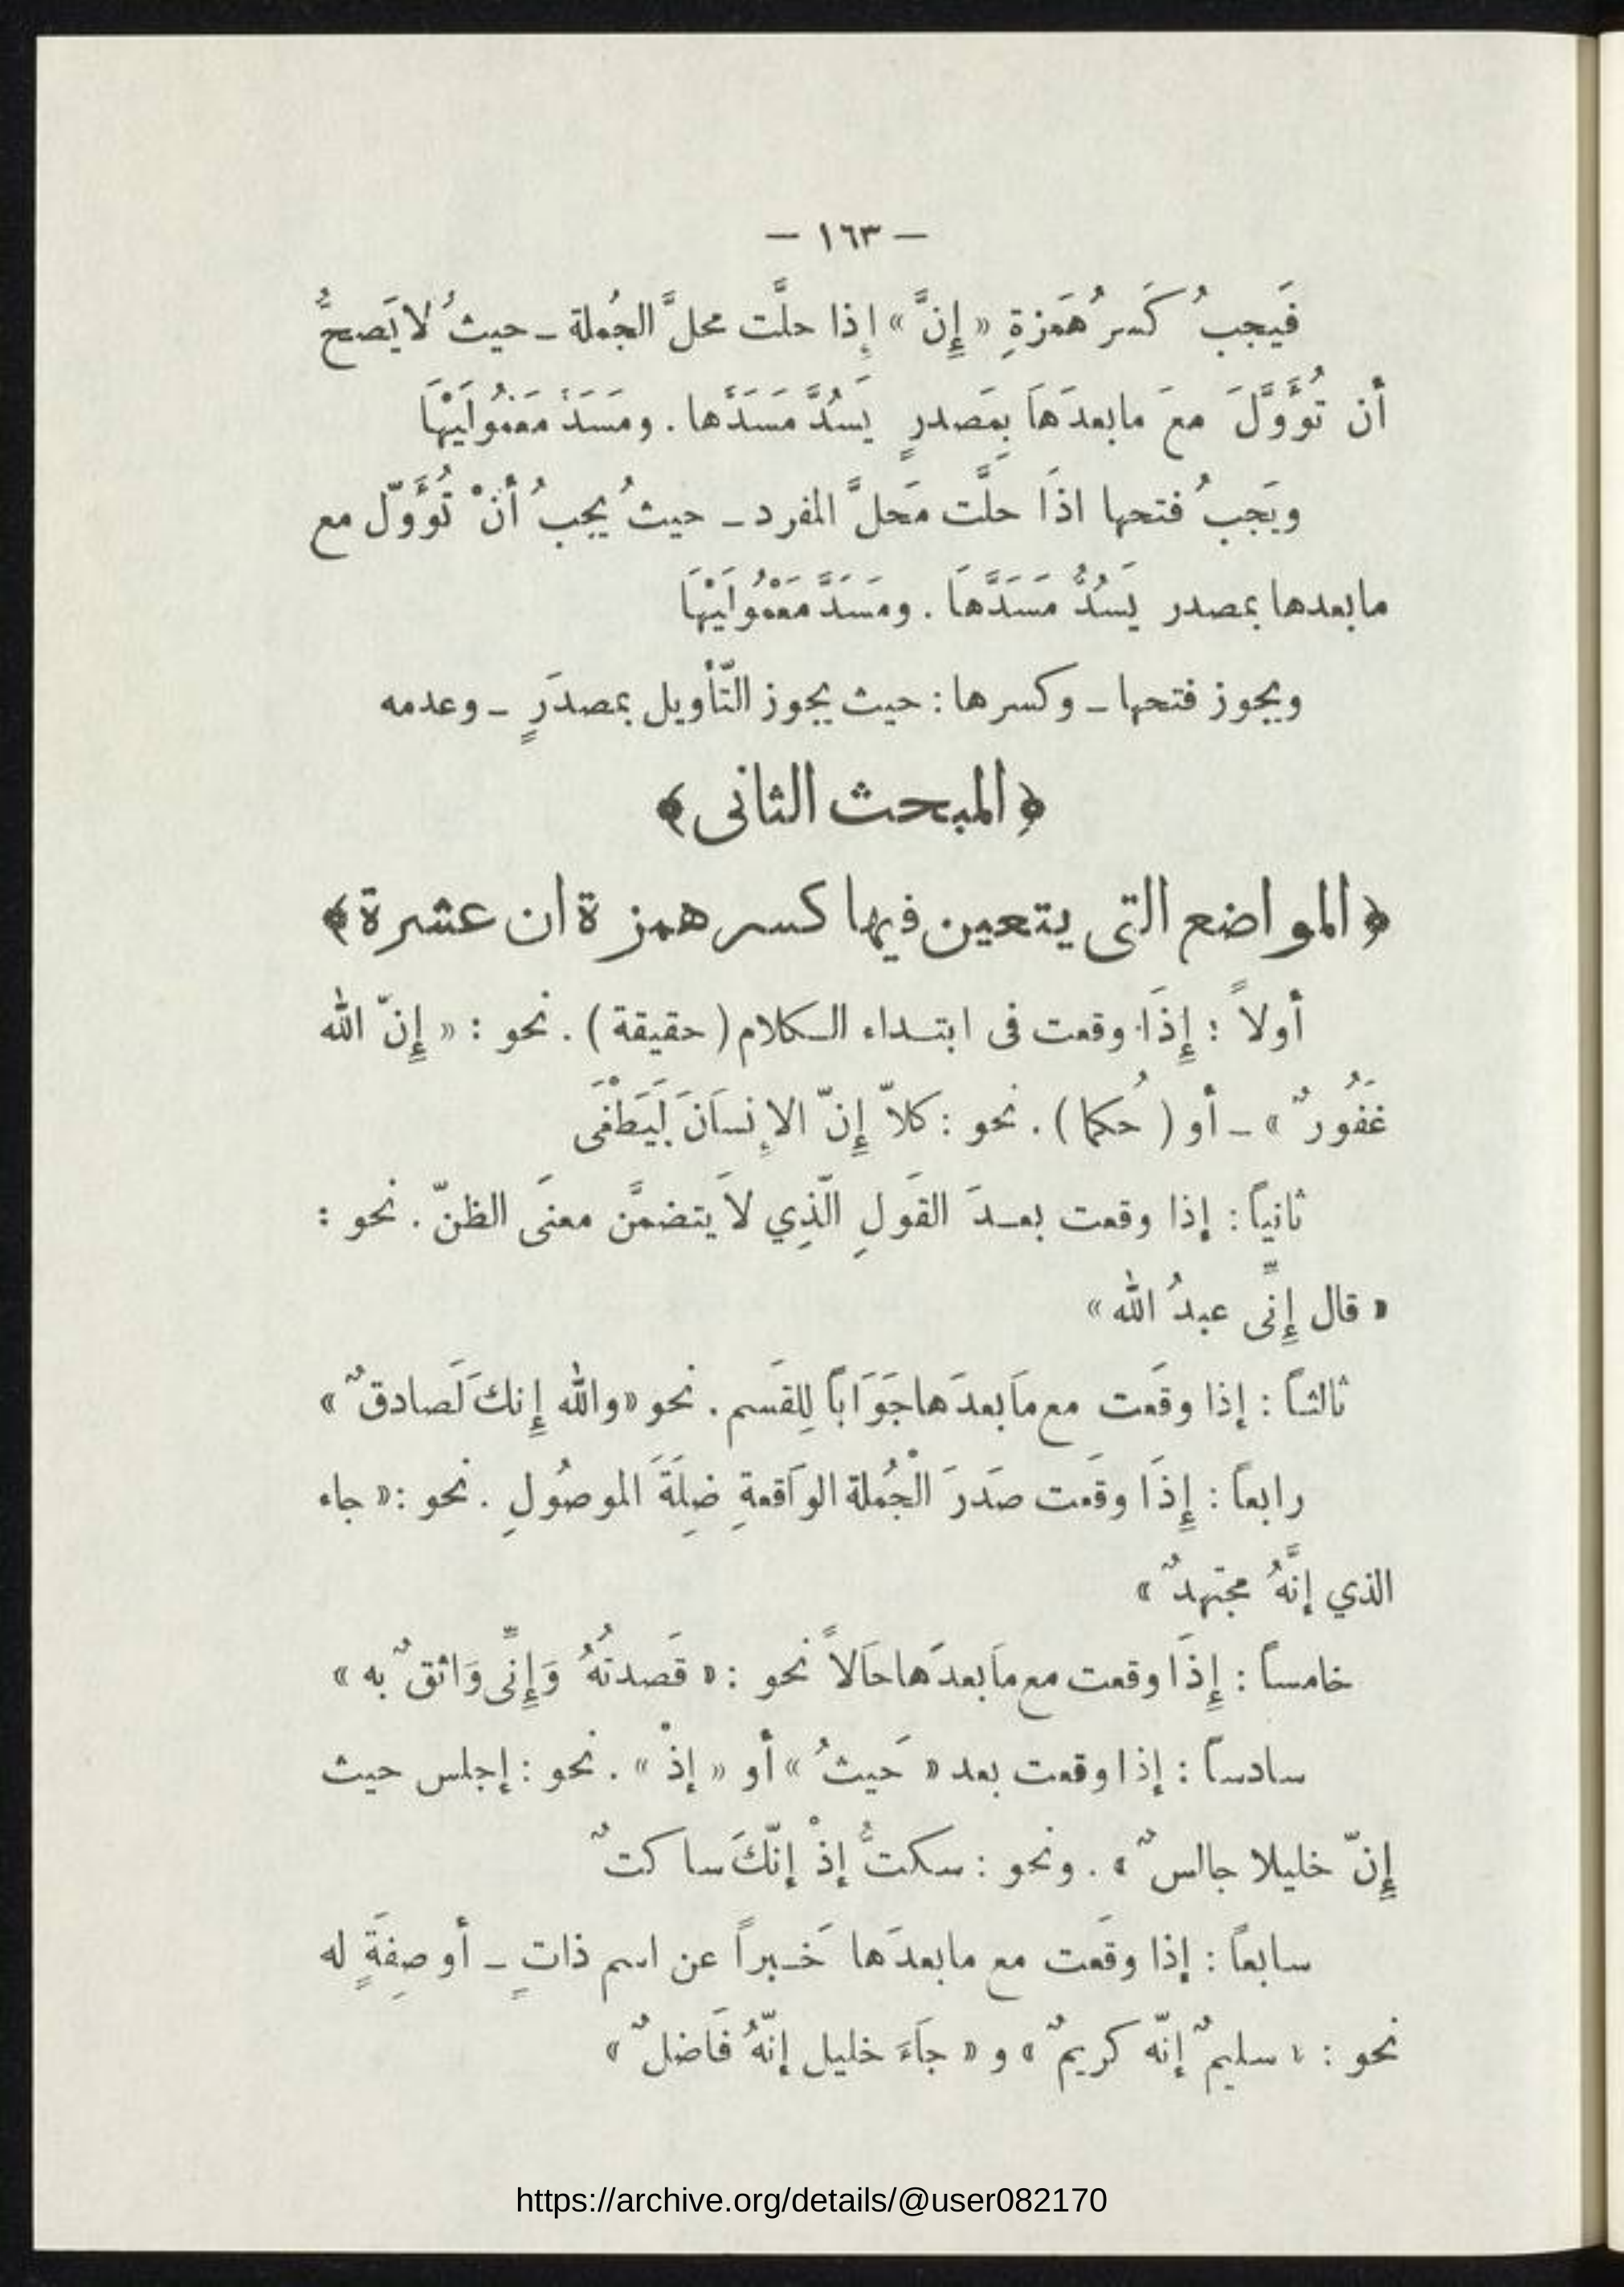 — ١٦٣ —
فَيجبُ كَسرُ هَمزةِ « إِنَّ » إِذا حلَّت محلَّ الجُملة ـ حيثُ لا يَصحُّ
أن تُؤَوَّلَ معَ مابعدَهَا بِمَصدرٍ يَسُدَّ مَسَدَّها . ومَسَدَّ مَعمُولَيْهَا
ويَجبُ فتحها اذَا حلَّت مَحلَّ المفرد ـ حيثُ يجبُ أنْ تُؤَوّل مع
مابعدها بمصدر يَسُدُّ مَسَدَّهَا . ومَسَدَّ مَعْمُولَيْهَا
ويجوز فتحها ـ وكسرها : حيث يجوز التّأويل بمصدَرٍ ـ وعدمه
﴿ المبحث الثانى ﴾
﴿ المواضع التى يتعين فيها كسر همزة ان عشرة ﴾
أولاً : إِذَا وقعت فى ابتداء الكلام ( حقيقة ) . نحو : « إِنّ الله
غَفُورٌ » ـ أو ( حُكما ) . نحو : كلاّ إِنّ الإِنسَانَ لَيَطْغَى
ثانياً : إذا وقعت بعدَ القَولِ الّذِي لاَ يتضمَّن معنَى الظنّ . نحو :
« قال إِنِّى عبدُ الله »
ثالثاً : إذا وقَعت مع مَابعدَها جَوَاباً لِلقَسم . نحو « والله إِنكَ لَصادقٌ »
رابعاً : إِذَا وقَعت صَدَرَ الْجُملة الوَاقعةِ ضِلَةَ الموصُولِ . نحو : « جاء
الذي إنَّهُ مجتهدٌ »
خامساً : إِذَا وقعت مع مَابَعدَها حَالاً نحو : « قَصدتُهُ وَإِنِّى وَاثقٌ به »
سادساً : إذا وقعت بعد « حَيثُ » أو « إذْ » . نحو : إجلس حيث
إِنّ خليلا جالسٌ » . ونحو : سكتُّ إذْ إنّكَ ساكتٌ
سابعاً : إذا وقَعت مع مابعدَها خَبراً عن اسم ذاتٍ ـ أو صِفَةٍ له
نحو : « سليمٌ إنّه كريمٌ » و « جَاءَ خليل إنّهُ فَاضلٌ »
https://archive.org/details/@user082170